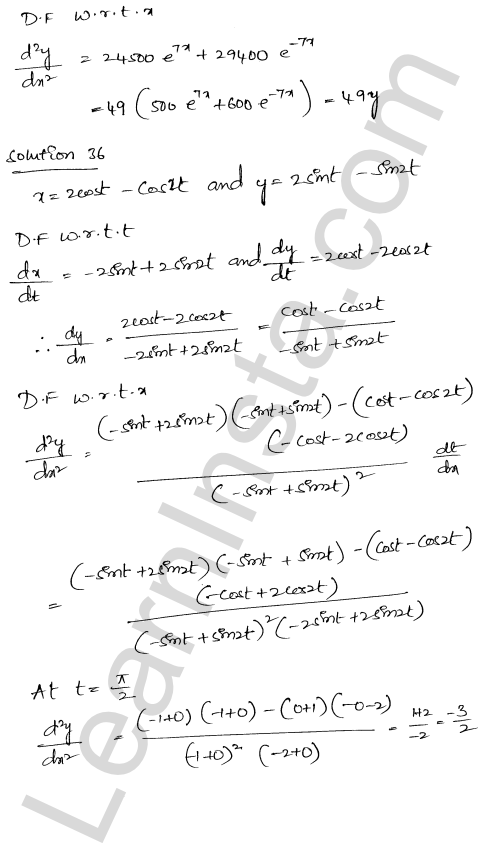 D.F w.r.t.x
d²y/dx² = 24500 e^7x + 29400 e^-7x
= 49 (500 e^7x + 600 e^-7x) = 49y
Solution 36
x = 2cost - cos2t and y = 2sint - sin2t
D.F w.r.t.t
dx/dt = -2sint + 2sin2t and dy/dt = 2cost - 2cos2t
∴ dy/dx = (2cost - 2cos2t)/(-2sint + 2sin2t) = (cost - cos2t)/(-sint + sin2t)
D.F w.r.t.x
d²y/dx² = (-sint + 2sin2t)(-sint + sin2t) - (cost - cos2t)
(-cost - 2cos2t)
(-sint + sin2t)² dt/dx
= (-sint + 2sin2t)(-sint + sin2t) - (cost - cos2t)
(-cost + 2cos2t)
(-sint + sin2t)² (-2sint + 2sin2t)
At t = π/2
d²y/dx² = (-1+0)(-1+0) - (0+1)(-0-2)/(-1+0)² (-2+0) = 1+2/-2 = -3/2
LearnInsta.com